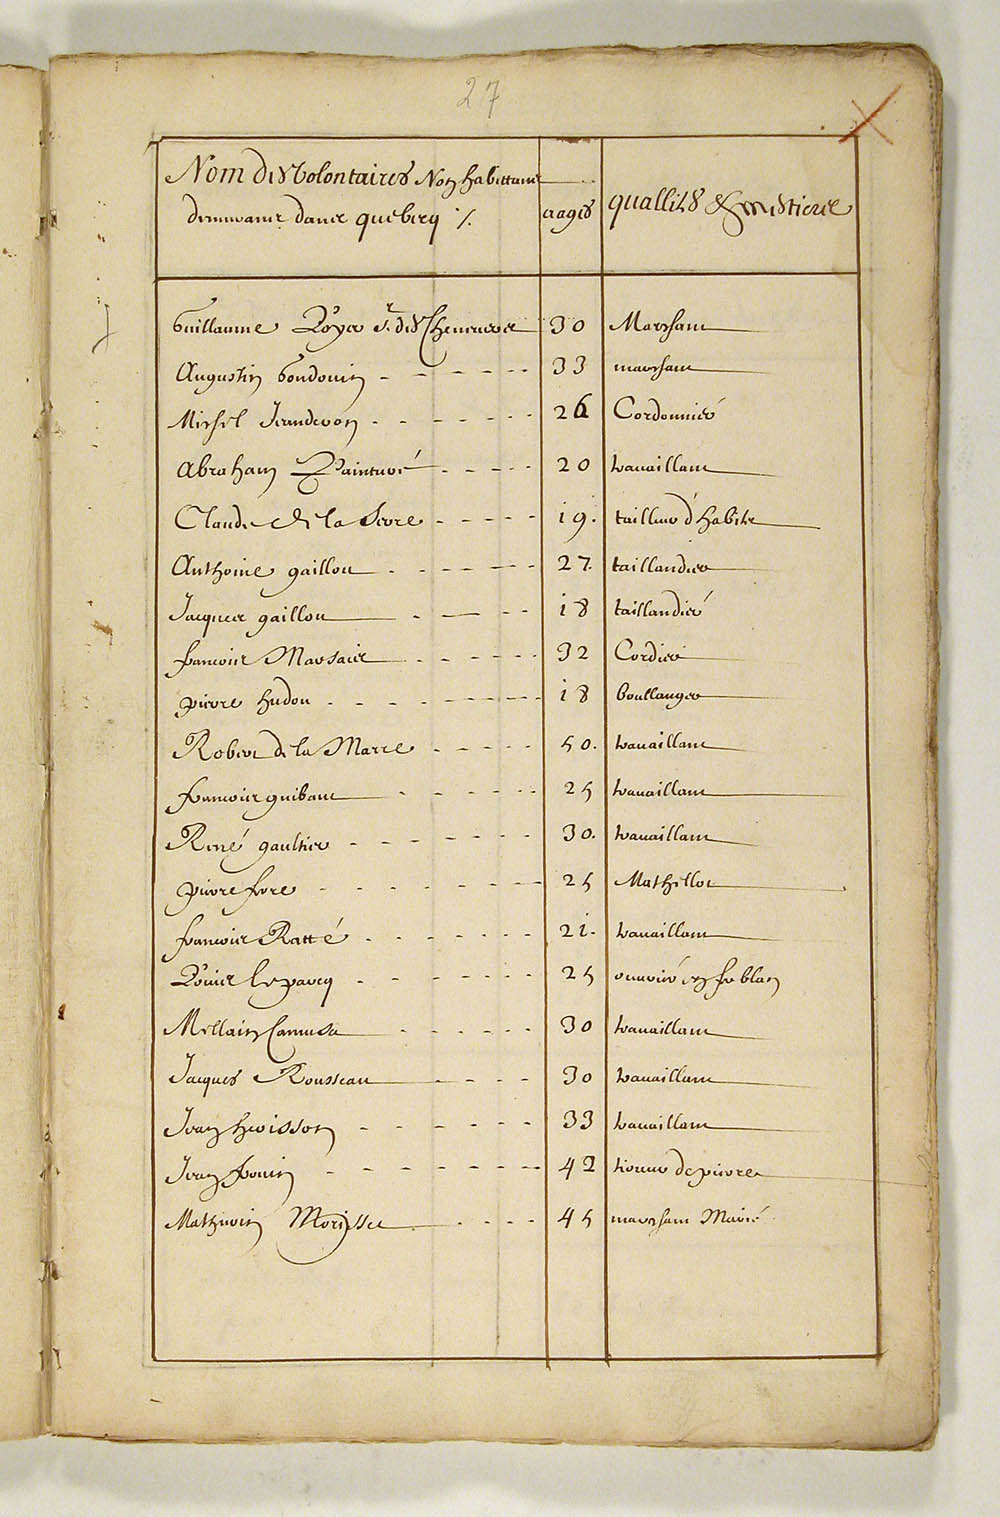 27
Nom des Vollontaires Non habittans aages quallités & mestieres
demeurans dans quebecq ·/.
Guillaume Royer Sr. des 30 Marchant
Augustin Gondouin 33 marchant
Michel 26 Cordonnier
Abraham 20 travaillant
Claude de la Serre 19. tailleur d'habits
Anthoine gaillou 27. taillandier
Jacques gaillou 18 taillandier
francois Marsais 32 Cordier
pierre hudon 18 boullanger
Robert de la Marre 50. travaillant
francois guibaut 25 travaillant
René gaultier 30. travaillant
pierre 25 Mathellot
francois Ratté 21. travaillant
Louis le parcq 25 ouvrier en fer blan
Mellain 30 travaillant
Jacques Rousseau 30 travaillant
Jean 33 travaillant
Jean 42 tireur de pierre
Mathurin Morisset 45 marchant Marié